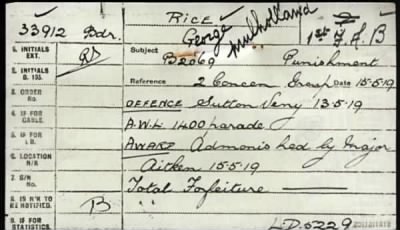 RICE
33912 Bdr. George Mulholland
5. INITIALS EXT.
Subject B2069 Punishment
6. INITIALS B. 103.
Reference 2 Concen Group Date 15-5-19
3. ORDER NO.
OFFENCE Sutton Veny 13-5-19
4. IF FOR CABLE.
A.W.L. 1400 parade
5. IF FOR I.B.
AWARD Admonished by Major
6. LOCATION N/R
Aitken 15-5-19
7. S/N NO.
Total Forfeiture
8. IS N'K TO BE NOTIFIED. B
9. IF FOR STATISTICS.
L.D.5229